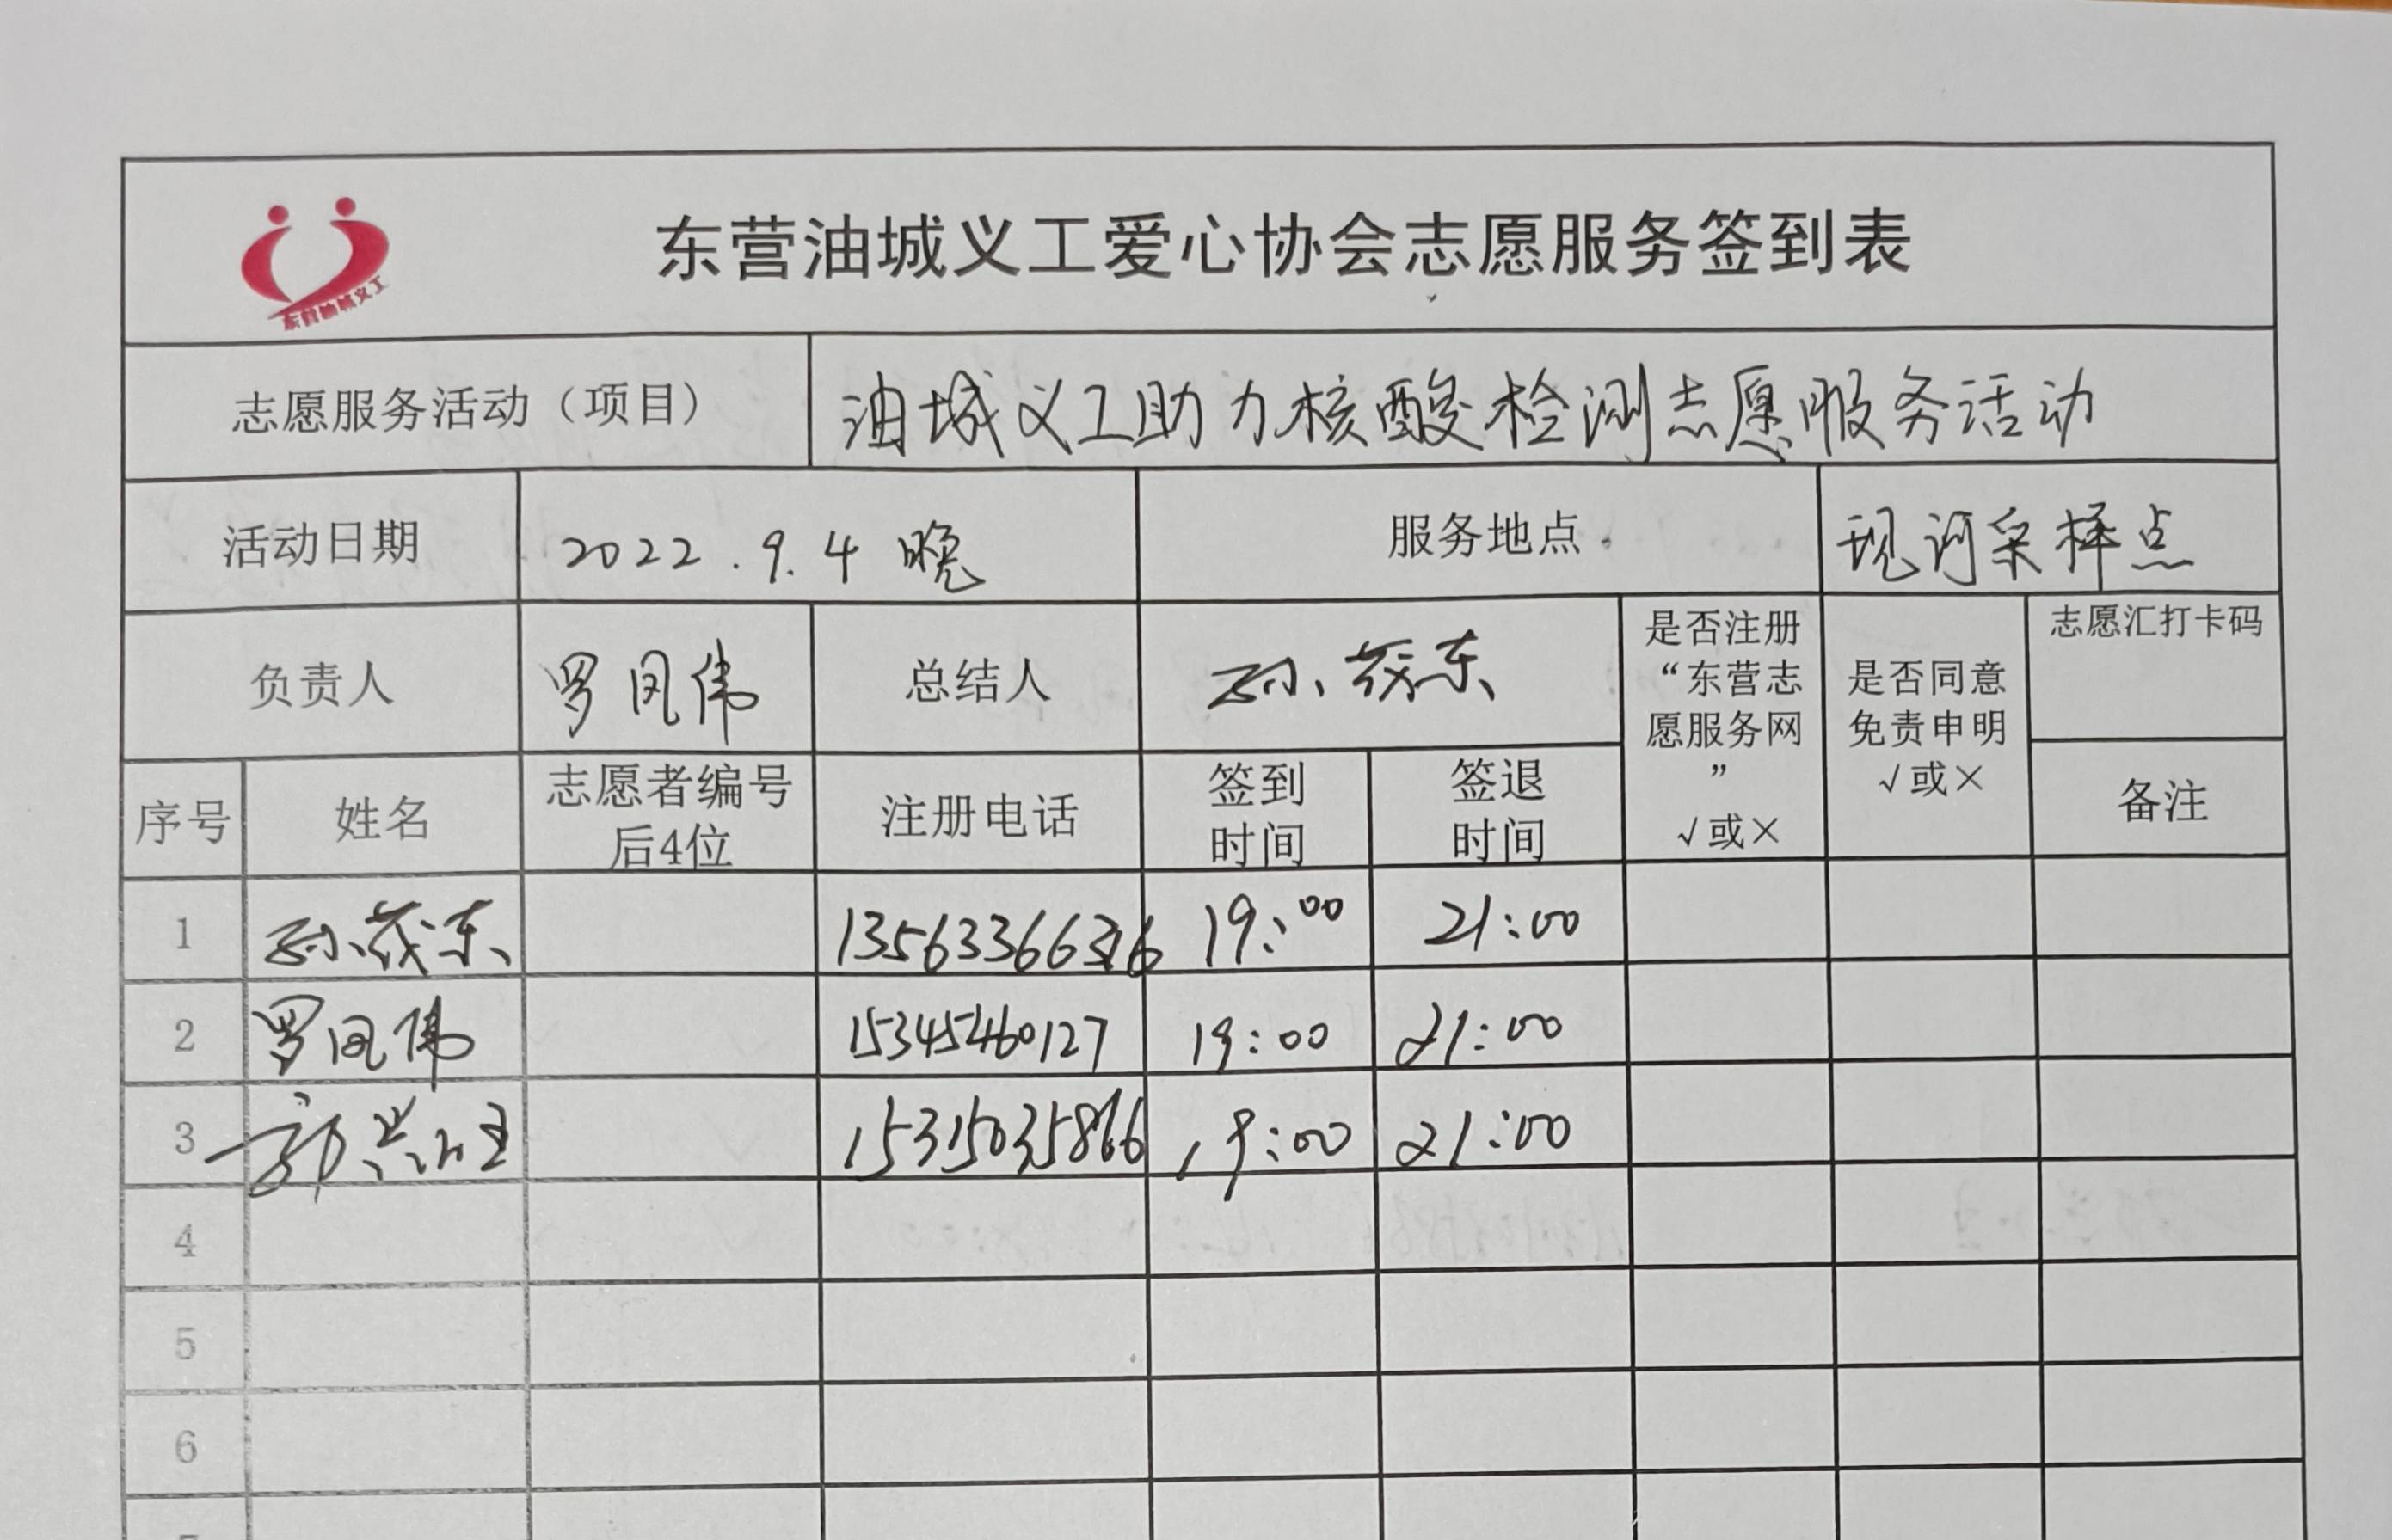 东营油城义工
东营油城义工爱心协会志愿服务签到表
志愿服务活动（项目） 油城义工助力核酸检测志愿服务活动
活动日期 2022.9.4 晚 服务地点 现河采样点
负责人 罗凤伟 总结人 孙茂东
是否注册
“东营志
愿服务网
”
√或×
是否同意
免责申明
√或×
志愿汇打卡码
序号 姓名
志愿者编号
后4位
注册电话
签到
时间
签退
时间
备注
1 孙茂东 19:00 21:00
2 罗凤伟 15345460127 19:00 21:00
3 15315035866 19:00 21:00
4
5
6